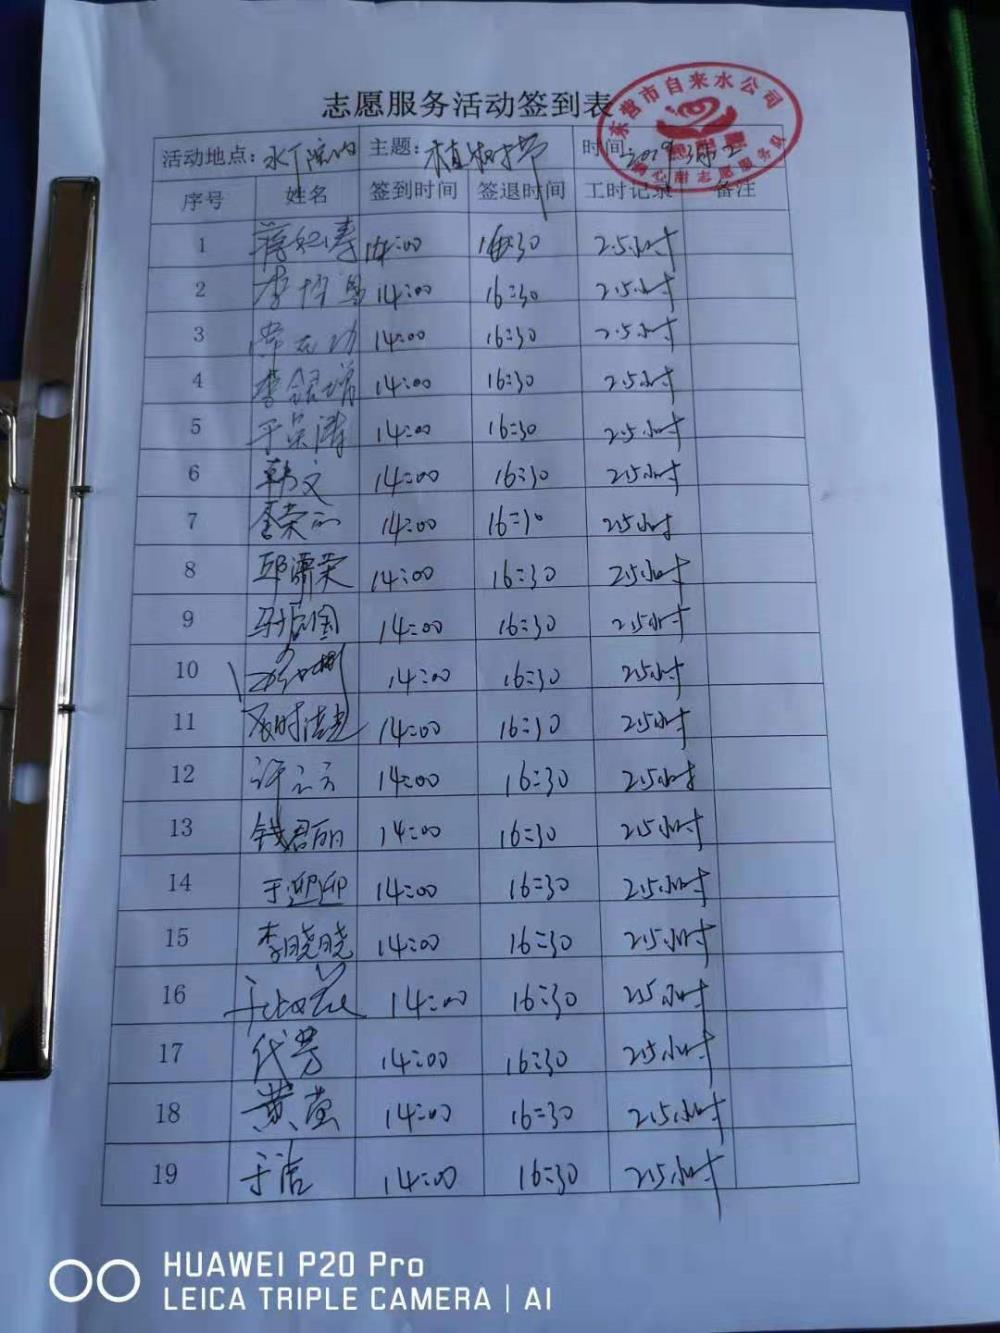 志愿服务活动签到表
东营市自来水公司
志愿服务队
活动地点: 主题:植树节 时间:2019.3.12
序号 姓名 签到时间 签退时间 工时记录 备注
1 14:00 16:30 2.5小时
2 14:00 16:30 2.5小时
3 14:00 16:30 2.5小时
4 李银增 14:00 16:30 2.5小时
5 14:00 16:30 2.5小时
6 韩文 14:00 16:30 2.5小时
7 14:00 16:30 2.5小时
8 邱潇荣 14:00 16:30 2.5小时
9 14:00 16:30 2.5小时
10 14:00 16:30 2.5小时
11 14:00 16:30 2.5小时
12 14:00 16:30 2.5小时
13 钱君丽 14:00 16:30 2.5小时
14 于迎迎 14:00 16:30 2.5小时
15 李晓晓 14:00 16:30 2.5小时
16 14:00 16:30 2.5小时
17 代芳 14:00 16:30 2.5小时
18 黄萤 14:00 16:30 2.5小时
19 于洁 14:00 16:30 2.5小时
HUAWEI P20 Pro
LEICA TRIPLE CAMERA | AI